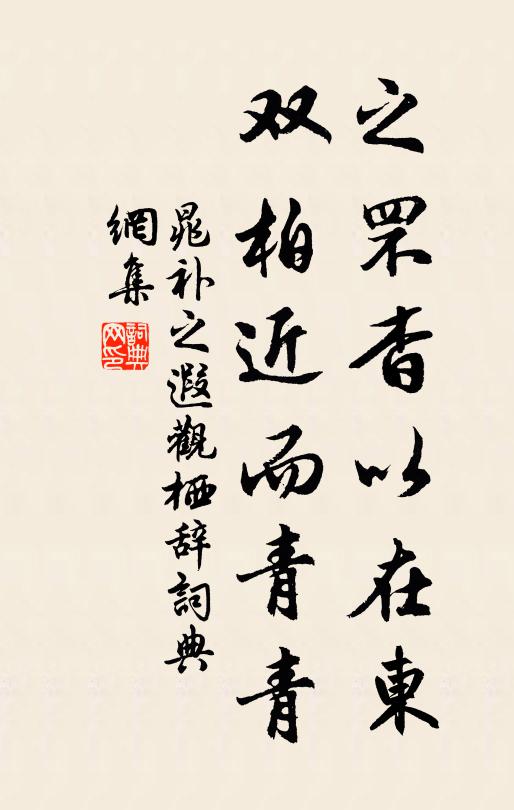 之罘杳以在東
双柏近而青青
晁补之遐觀栖辞詞典
網集
詞典网印